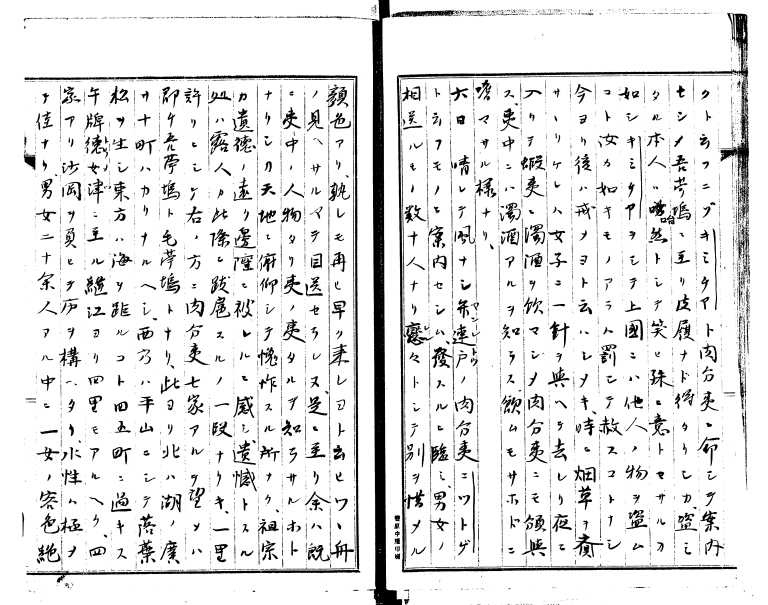 クト云フニヅキミタアト肉分夷ニ命シテ案内
セシメ吾夢塢ニ至リ皮履ナド得タリシカ盗ミ
タル本人ハ啞然トシテ笑ヒ殊ニ意トセサルカ
如シキミタアヲシテ上國ニハ他人ノ物ヲ盗ム
コト汝カ如キモノアラハ罰シテ赦スコトナシ
今ヨリ後ハ戒メヨト云ハシメキ、時ニ烟草ヲ賣
サリケレハ女子ニ一針ヲ與ヘテ去レリ夜ニ
入リテ蝦夷ニ濁酒ヲ飲マシメ肉分夷ニモ頒與
ス、夷中ニハ濁酒アルヲ知ラス飲ムモサホドニ
嗜マサル様ナリ、
六日 晴レテ風ナシ 連戸ノ肉分夷ニワトゲ
ト云フモノニ案内セシム、發スルニ臨ミ、男女ノ
相送ルモノ数十人ナリ戀々トシテ別ヲ惜メル
顔色アリ、孰レモ再ヒ早ク来レヨト云ヒツヽ舟
ノ見ヘサルマテ目送セラレヌ、是ニ至リ余ハ既
ニ夷中ノ人物タリ夷ノ夷タルヲ知ラサルホト
ナリシカ天地ニ俯仰シテ愧怍スル所ナク、祖宗
カ遺德ノ遠ク邊陲ニ被レルニ感シ遺憾トスル
処ハ露人カ此際ニ跋扈スルノ一段ナリキ、一里
許リニシテ右ノ方ニ肉分夷七家アルヲ望メハ
即ケ吾夢塢ト毛夢塢トナリ、此ヨリ北ハ湖ノ廣
サ十町ハカリナルヘシ、西ハ平山ニシテ落葉
松ヲ生シ東方ハ海ヲ距ルコト四五町ニ過キス
午牌德女津ニ至ル繼江ヨリ四里モアルヘク、四
家アリ沙岡ヲ負ヒテ居ヲ構ヘタリ、水性ハ極メ
テ佳ナリ、男女二十余人アル中ニ一女ノ容色絶